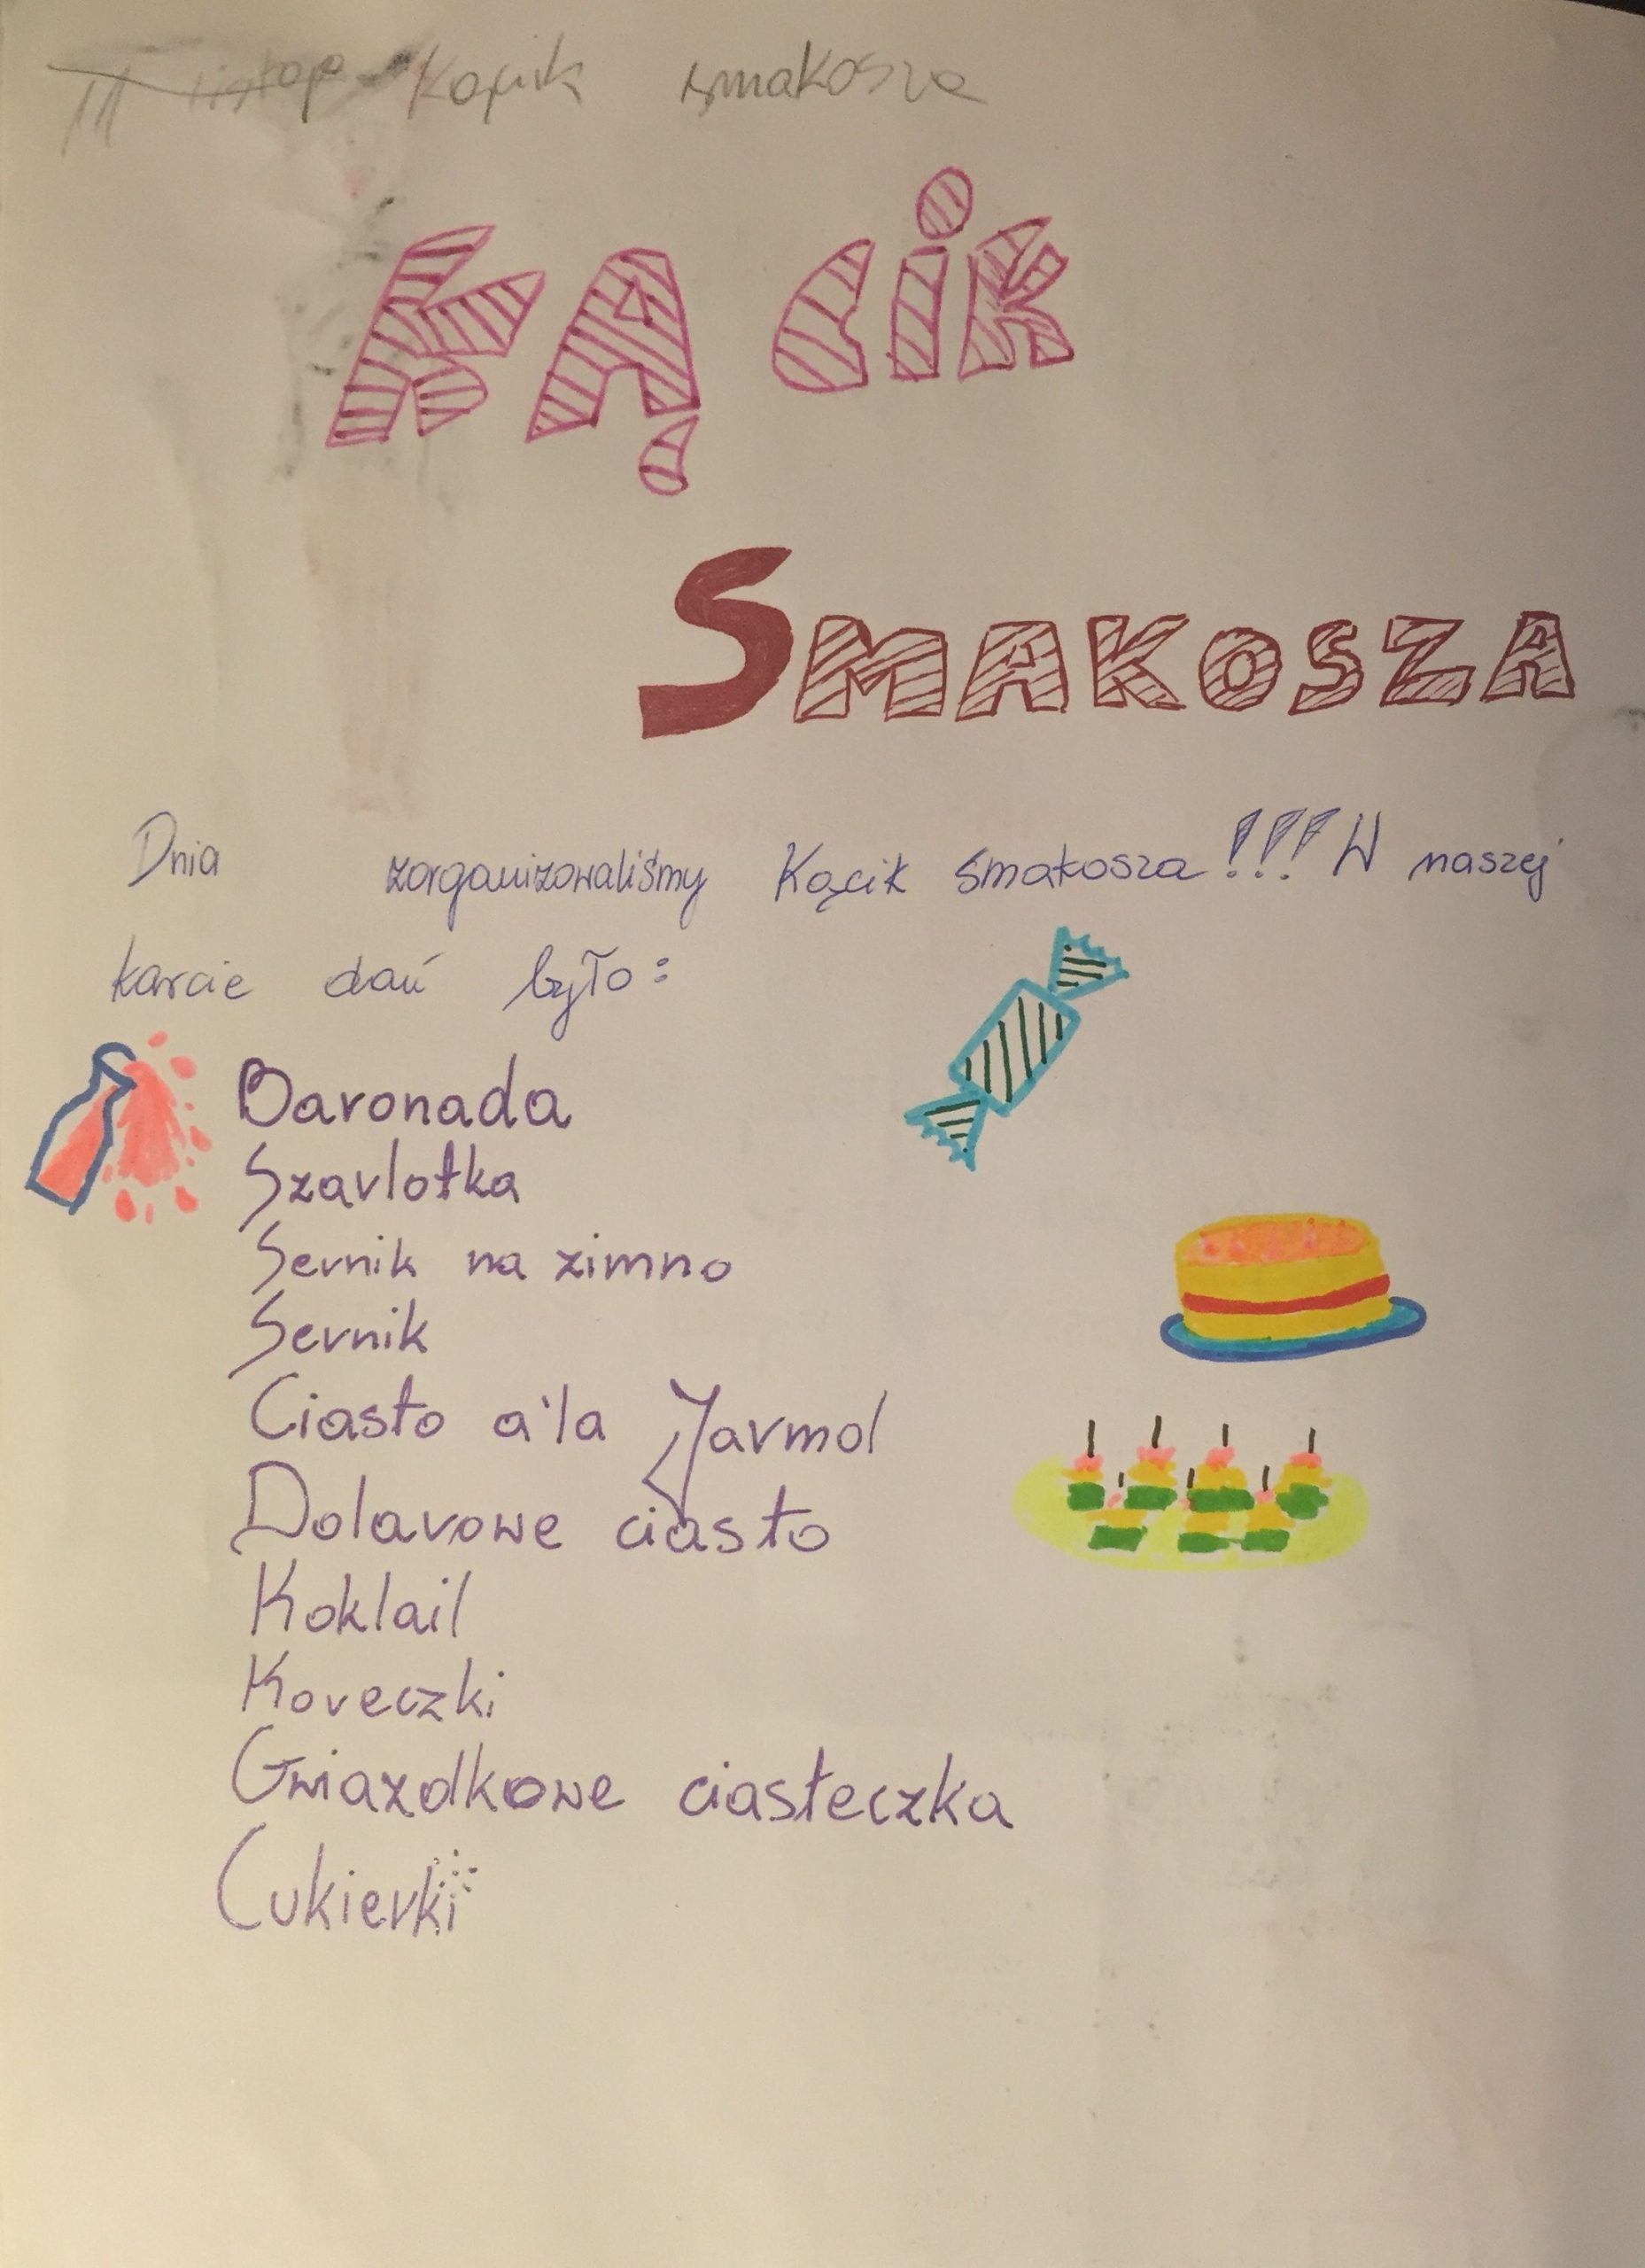 Kącik smakosza
KĄCIK
SMAKOSZA
Dnia zorganizowaliśmy Kącik smakosza!!! W naszej
karcie dań było:
Baronada
Szarlotka
Sernik na zimno
Sernik
Ciasto a'la Jarmol
Dolarowe ciasto
Koklail
Koreczki
Gwiazdkowe ciasteczka
Cukierki